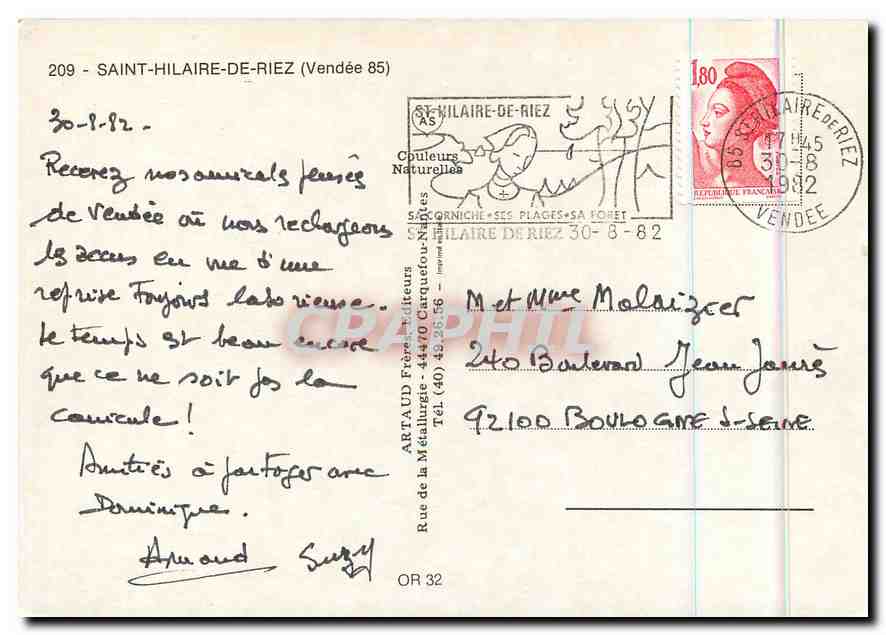 209 - SAINT-HILAIRE-DE-RIEZ (Vendée 85)
30-8-82-
Recevez nos amicales pensées
de Vendée où nous rechargeons
les accus en vue d'une
reprise toujours laborieuse.
Le temps est beau encore
que ce ne soit pas la
canicule !
Amitiés à partager avec
Dominique.
Armand Suzy
ST-HILAIRE-DE-RIEZ
AS
Couleurs
Naturelles
SA CORNICHE • SES PLAGES • SA FORET
ST HILAIRE DE RIEZ 30-8-82
1,80
REPUBLIQUE FRANÇAISE
85 ST HILAIRE DE RIEZ
17H45
30-8
1982
VENDEE
ARTAUD Frères, Editeurs
Rue de la Métallurgie - 44470 Carquefou-Nantes
Tél. (40) 49.26.56 - Imprimé en
CPAPHIL
M et Mme
240 Boulevard Jean Jaurès
92100 BOULOGNE S-SEINE
OR 32